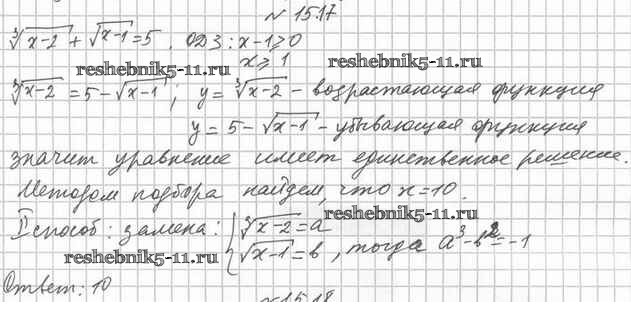 № 15.17
∛(x-2) + √(x-1) = 5. ОДЗ: x-1 ⩾ 0
x ⩾ 1
reshebnik5-11.ru reshebnik5-11.ru
∛(x-2) = 5 - √(x-1); y = ∛(x-2) - возрастающая функция
y = 5 - √(x-1) - убывающая функция
значит уравнение имеет единственное решение.
Методом подбора найдем, что x = 10.
II способ: замена: { ∛(x-2) = a
reshebnik5-11.ru
√(x-1) = b, тогда a³ - b² = -1
reshebnik5-11.ru
Ответ: 10
№ 15.18